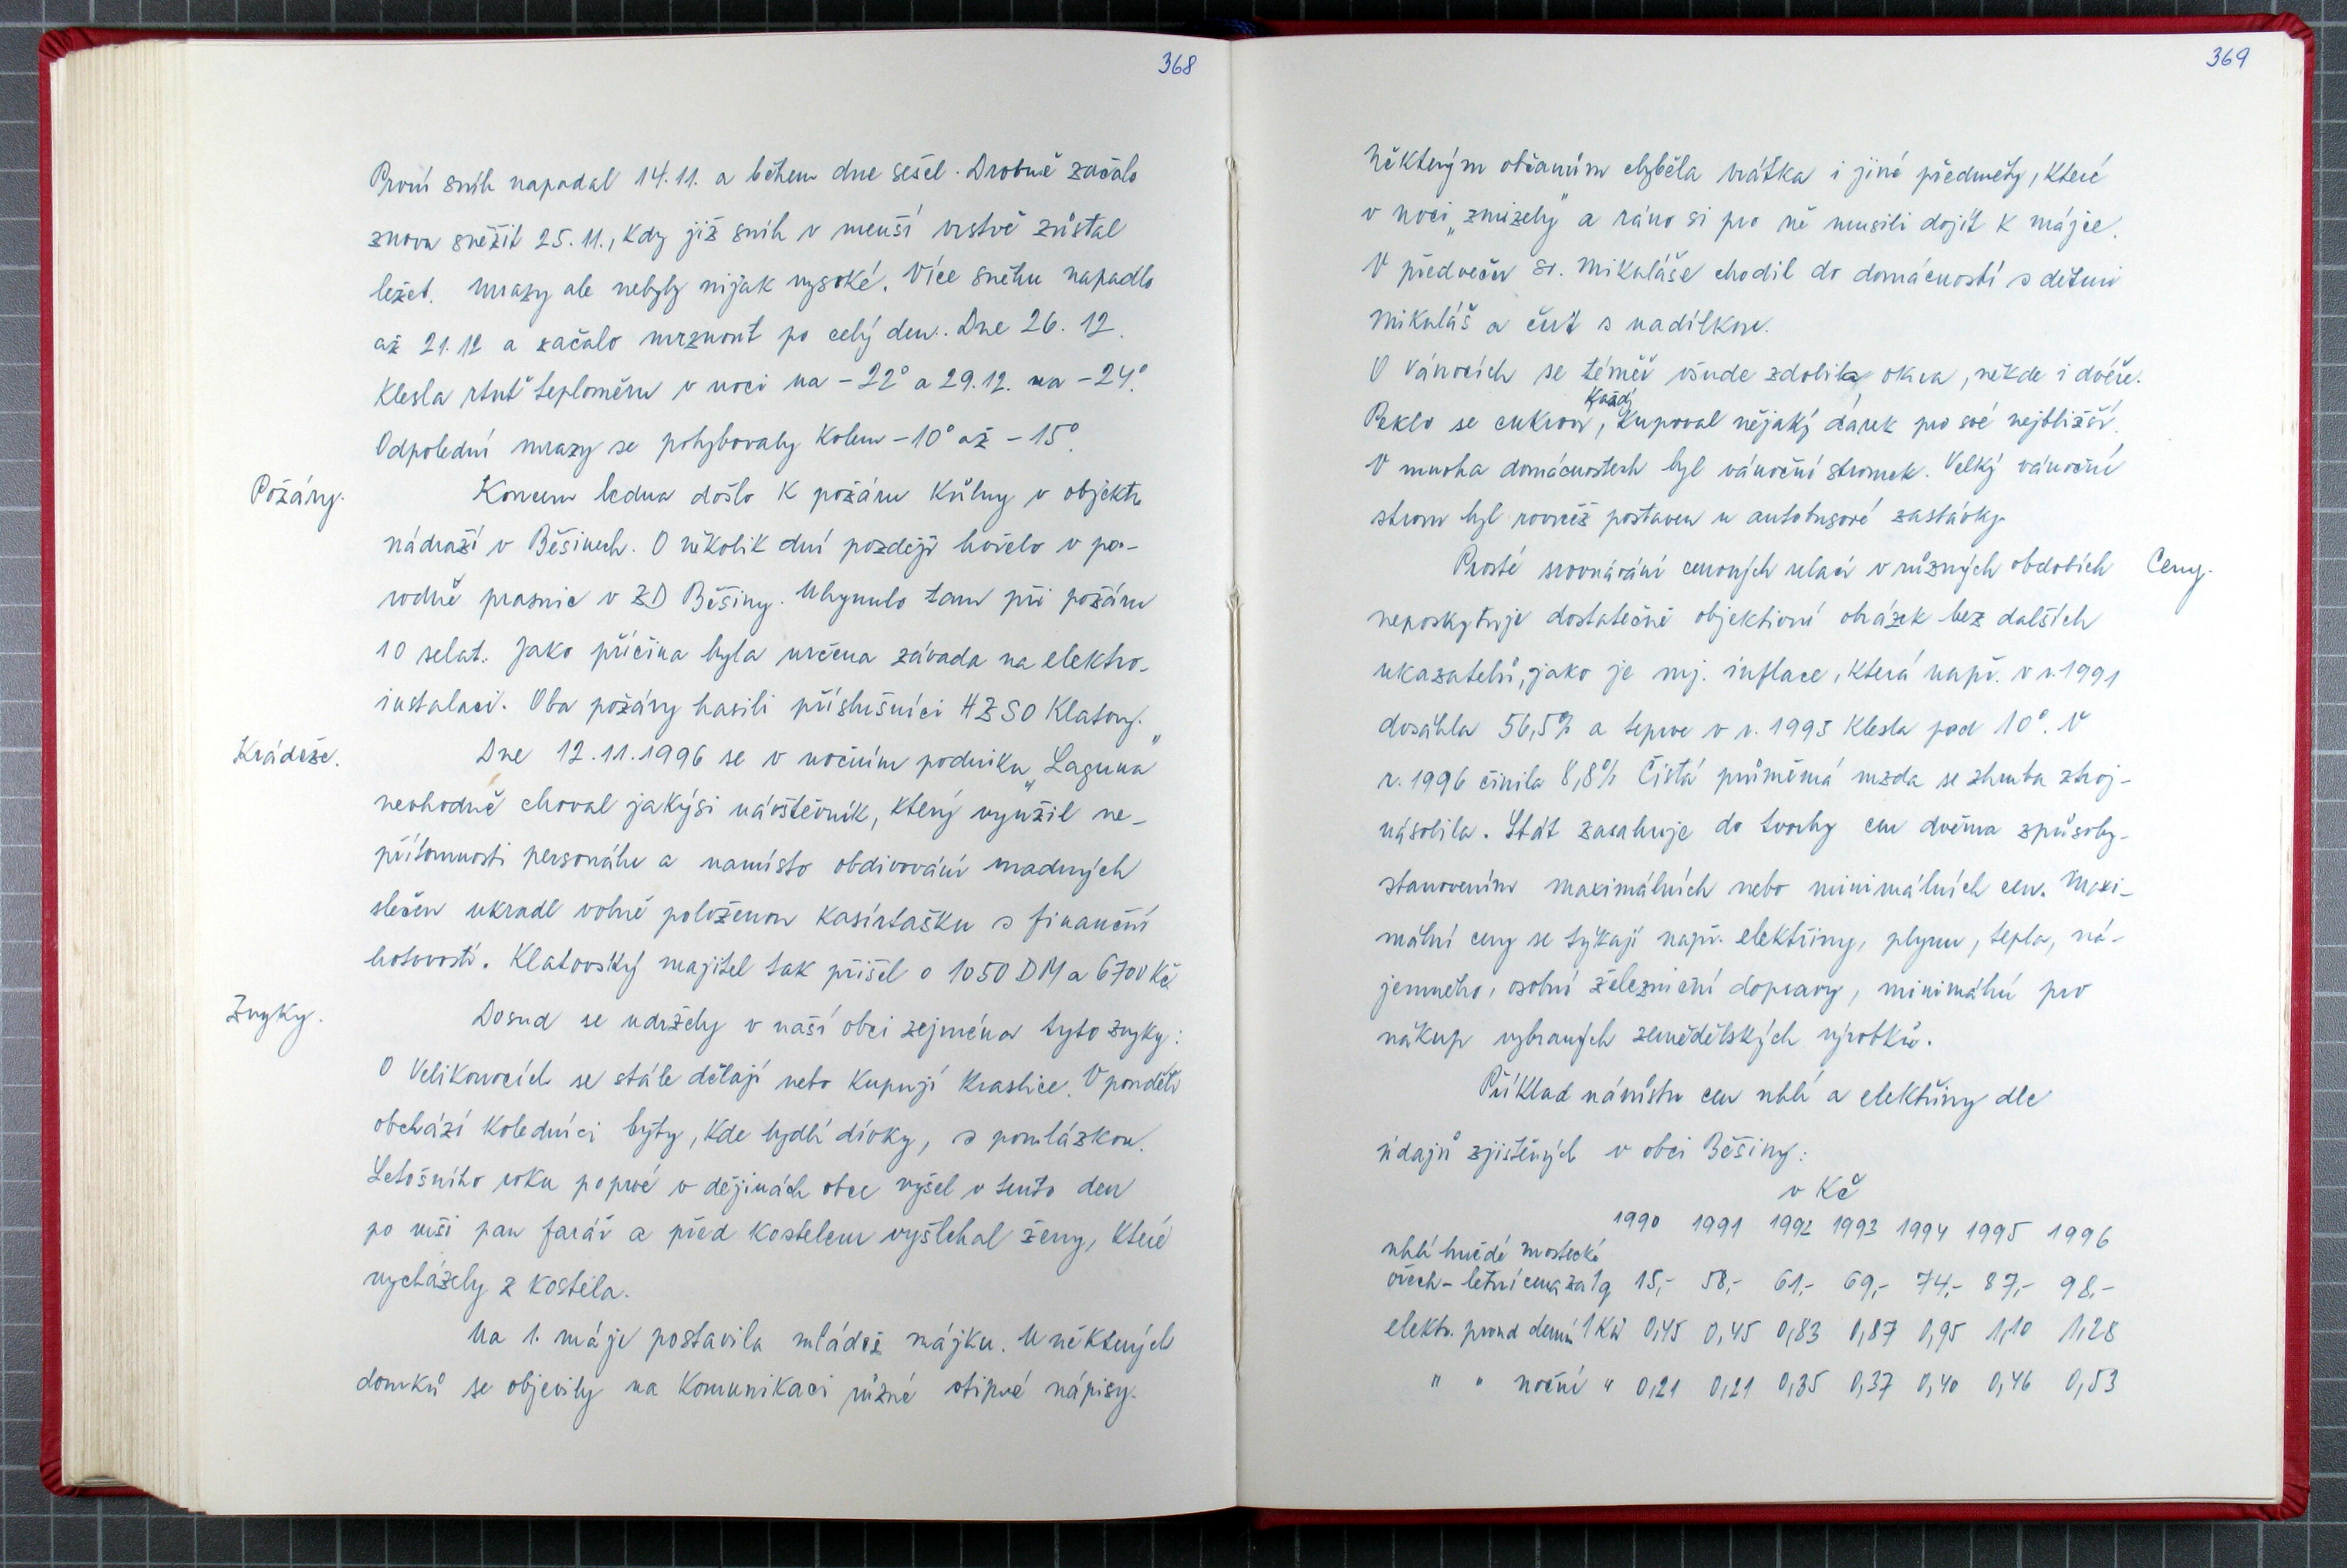 368
První sníh napadal 14.11. a během dne sešel. Drobně začalo
znovu sněžit 25.11., kdy již sníh v menší vrstvě zůstal
ležet. Mrazy ale nebyly nijak vysoké. Více sněhu napadlo
až 21.12 a začalo mrznout po celý den. Dne 26.12.
klesla rtuť teploměru v noci na -22° a 29.12. na -24°.
Odpolední mrazy se pohybovaly kolem -10° až -15°.
Požáry.
Koncem ledna došlo k požáru kůlny v objektu
nádraží v Běšinech. O několik dní později hořelo v po-
rodně prasnic v ZD Běšiny. Uhynulo tam při požáru
10 selat. Jako příčina byla určena závada na elektro-
instalaci. Oba požáry hasili příslušníci HZSO Klatovy.
Krádeže.
Dne 12.11.1996 se v nočním podniku „Laguna"
nevhodně choval jakýsi návštěvník, který využil ne-
přítomnosti personálu a namísto obdivování vnadných
slečen ukradl volně položenou kasírtašku s finanční
hotovostí. Klatovský majitel tak přišel o 1050 DM a 6700 Kč.
Zvyky.
Dosud se udržely v naší obci zejména tyto zvyky:
O Velikonocích se stále dělají nebo kupují kraslice. V pondělí
obchází koledníci byty, kde bydlí dívky, s pomlázkou.
Letošního roku poprvé v dějinách obce vyšel v tento den
po mši pan farář a před kostelem vyšlehal ženy, které
vycházely z kostela.
Na 1. máje postavila mládež májku. U některých
domků se objevily na komunikaci různé vtipné nápisy.
369
Některým občanům chyběla vrátka i jiné předměty, které
v noci „zmizely" a ráno si pro ně musili dojít k májce.
V předvečer sv. Mikuláše chodil do domácností s dětmi
Mikuláš a čert s nadílkou.
O Vánocích se téměř všude zdobila okna, někde i dveře.
Každý
Peklo se cukroví, kupoval nějaký dárek pro své nejbližší.
V mnoha domácnostech byl vánoční stromek. Velký vánoční
strom byl rovněž postaven u autobusové zastávky.
Prosté srovnávání cenových relací v různých obdobích
Ceny.
neposkytuje dostatečně objektivní obrázek bez dalších
ukazatelů, jako je mj. inflace, která např. v r. 1991
dosáhla 56,5% a teprve v r. 1993 klesla pod 10°. V
r. 1996 činila 8,8% Čistá průměrná mzda se zhruba ztroj-
násobila. Stát zasahuje do tvorby cen dvěma způsoby-
stanovením maximálních nebo minimálních cen. Maxi-
mální ceny se týkají např. elektřiny, plynu, tepla, ná-
jemného, osobní železniční dopravy, minimální pro
nákup vybraných zemědělských výrobků.
Příklad nárůstu cen uhlí a elektřiny dle
údajů zjištěných v obci Běšiny:
v Kč
1990 1991 1992 1993 1994 1995 1996
uhlí hnědé mostecké
ořech - letní cena za 1q 15,- 58,- 61,- 69,- 74,- 87,- 98,-
elektr. proud denní 1 kW 0,45 0,45 0,83 0,87 0,95 1,10 1,28
" " noční " 0,21 0,21 0,35 0,37 0,40 0,46 0,53